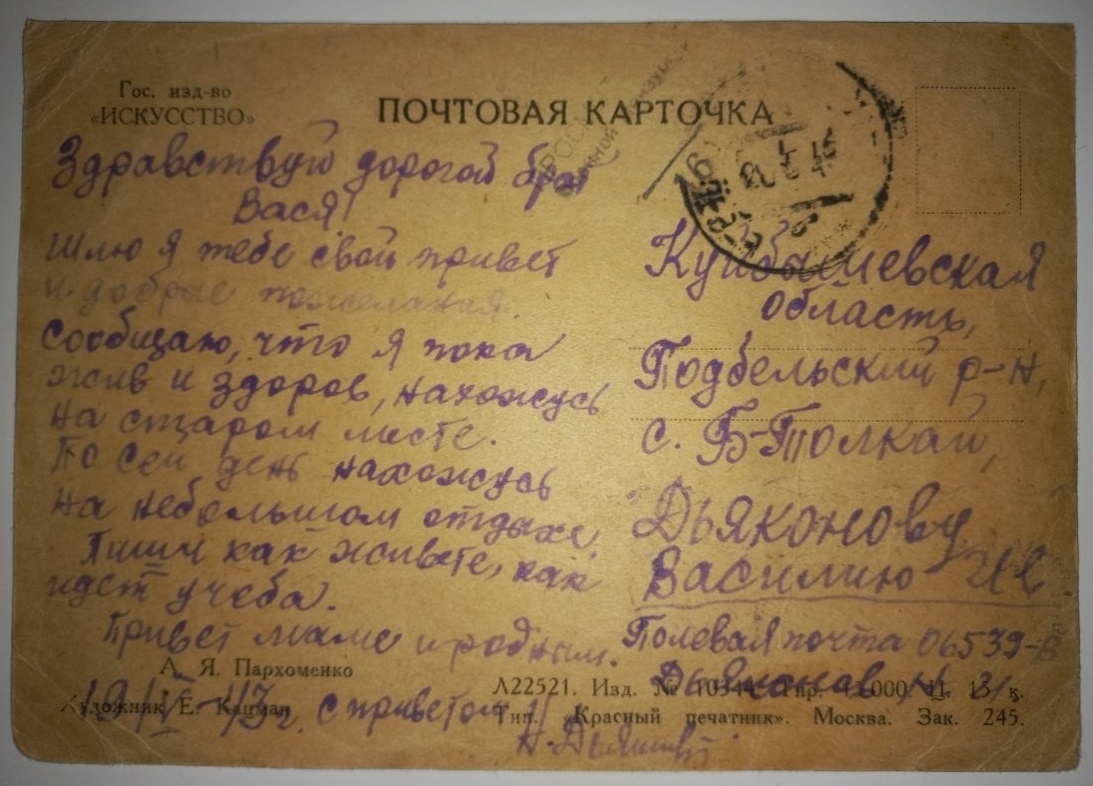 Гос. изд-во
«ИСКУССТВО»
ПОЧТОВАЯ КАРТОЧКА
Здравствуй дорогой брат
Вася!
Шлю я тебе свой привет
и добрые пожелания.
Сообщаю, что я пока
жив и здоров, нахожусь
на старом месте.
По сей день нахожусь
на небольшом отдыхе.
Пиши как живете, как
идет учеба.
Привет маме и родным.
с приветом
Куйбышевская
область,
Подбельский р-н,
с. Б-Толкай,
Дьяконову
Василию
Полевая почта 06539-В
А. Я. Пархоменко
Художник Е. Кацман
Л22521. Изд. № Тир. Ц. 15 к.
Тип. «Красный печатник». Москва. Зак. 245.